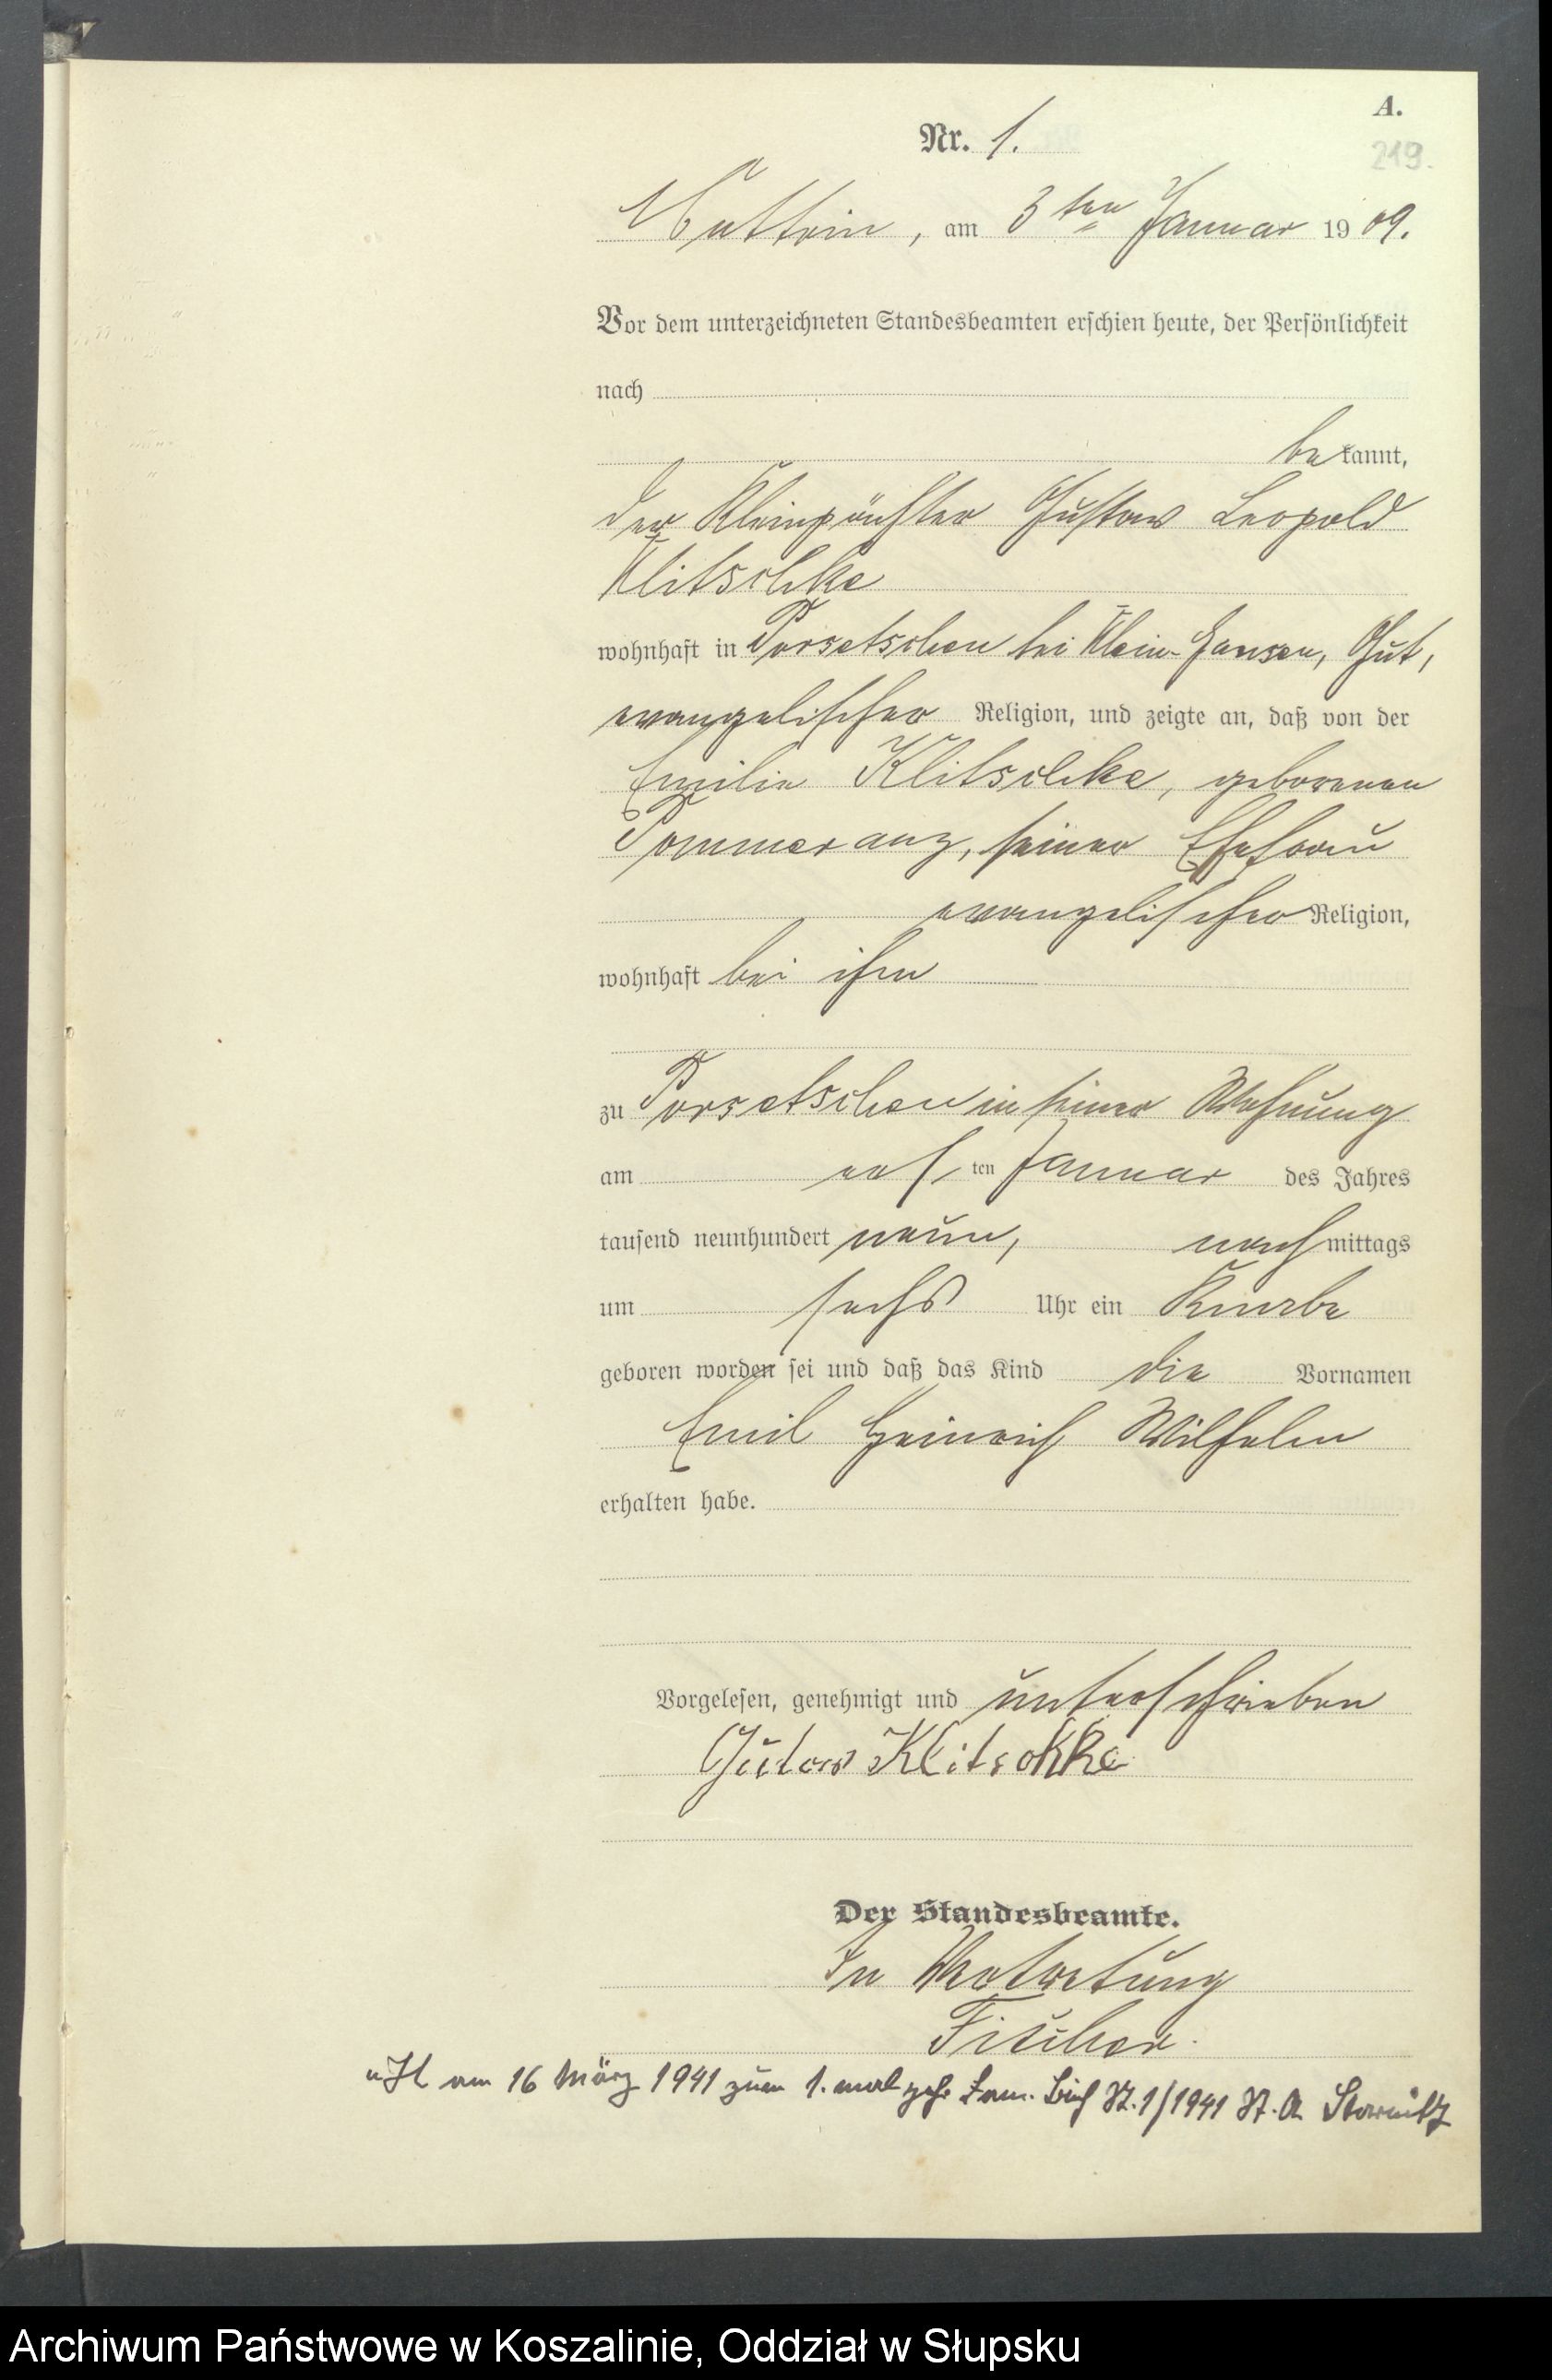 A.
Nr. 1.
219.
Muttrin, am 3ten Januar 1909.
Vor dem unterzeichneten Standesbeamten erschien heute, der Persönlichkeit
nach
bekannt,
der Kleinpächter Gustav Leopold
Klitschke
wohnhaft in Porsetschen bei Klein-Gansen, Gut,
evangelischer Religion, und zeigte an, daß von der
Emilie Klitschke, geborenen
Pommeranz, seiner Ehefrau
evangelischer Religion,
wohnhaft bei ihm
zu Porsetschen in seiner Wohnung
am ersten Januar des Jahres
tausend neunhundert neun, nachmittags
um sechs Uhr ein Knabe
geboren worden sei und daß das Kind die Vornamen
Emil Heinrich Wilhelm
erhalten habe.
Vorgelesen, genehmigt und unterschrieben
Gustav Klitschke
Der Standesbeamte.
In Vertretung
Fischer.
am 16 März 1941 zum 1. mal geh. Fam. Buch Nr. 1/1941 St. A.
Archiwum Państwowe w Koszalinie, Oddział w Słupsku